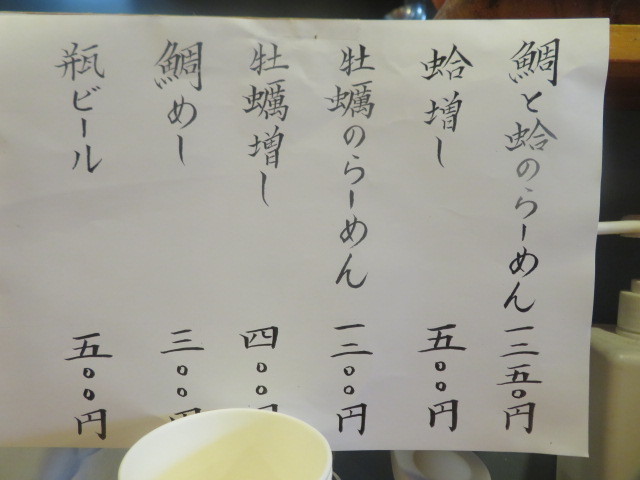 鯛と蛤のらーめん 一二五〇円
蛤増し 五〇〇円
牡蠣のらーめん 一二〇〇円
牡蠣増し 四〇〇円
鯛めし 三〇〇円
瓶ビール 五〇〇円